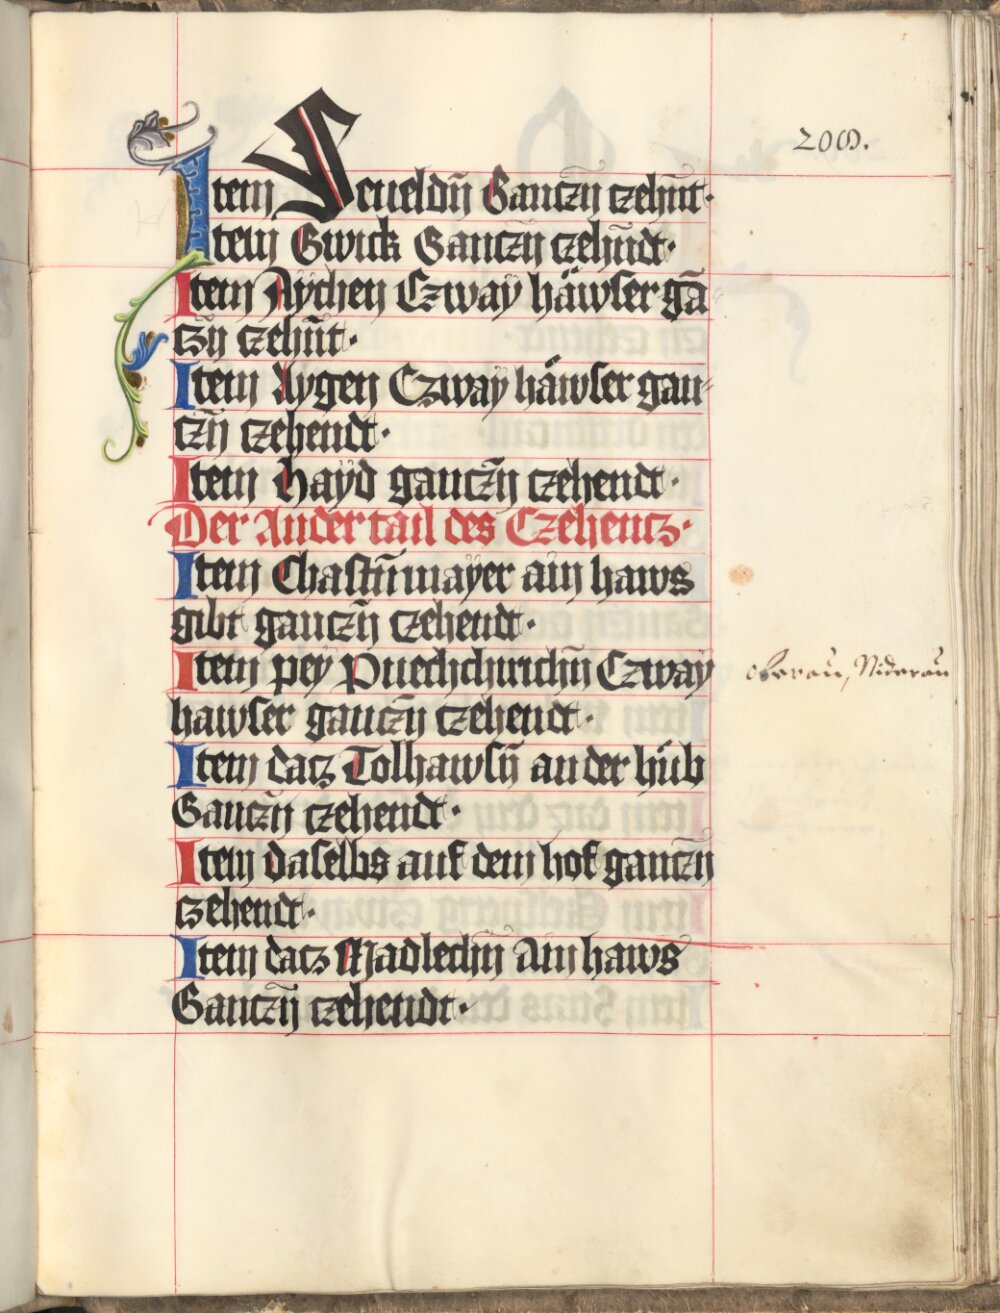 200.
Item Veueldn̄ Gancz̄n czehn̄t·
Item Gwick Gancz̄n czehn̄dt·
Item Aÿchen Czwaÿ häwser gā
cz̄n czehn̄t·
Item Aygen Czway häwser gan-
cz̄n czehendt·
Item Haÿd gancz̄n czehendt·
Der Ander tail des Czehentz·
Item Chastn̄mayer ain haws
gibt gancz̄n czehendt·
Item pey Puechchirichn̄ Czwaÿ
oberau, Niderau
hawser gancz̄n czehendt·
Item dacz Tolhawsn̄ an der hüb
Gancz̄n czehendt·
Item daselbs auf dem hof gancz̄n
czehendt·
Item dacz Madlechn̄ Ain haws
Gancz̄n czehendt·